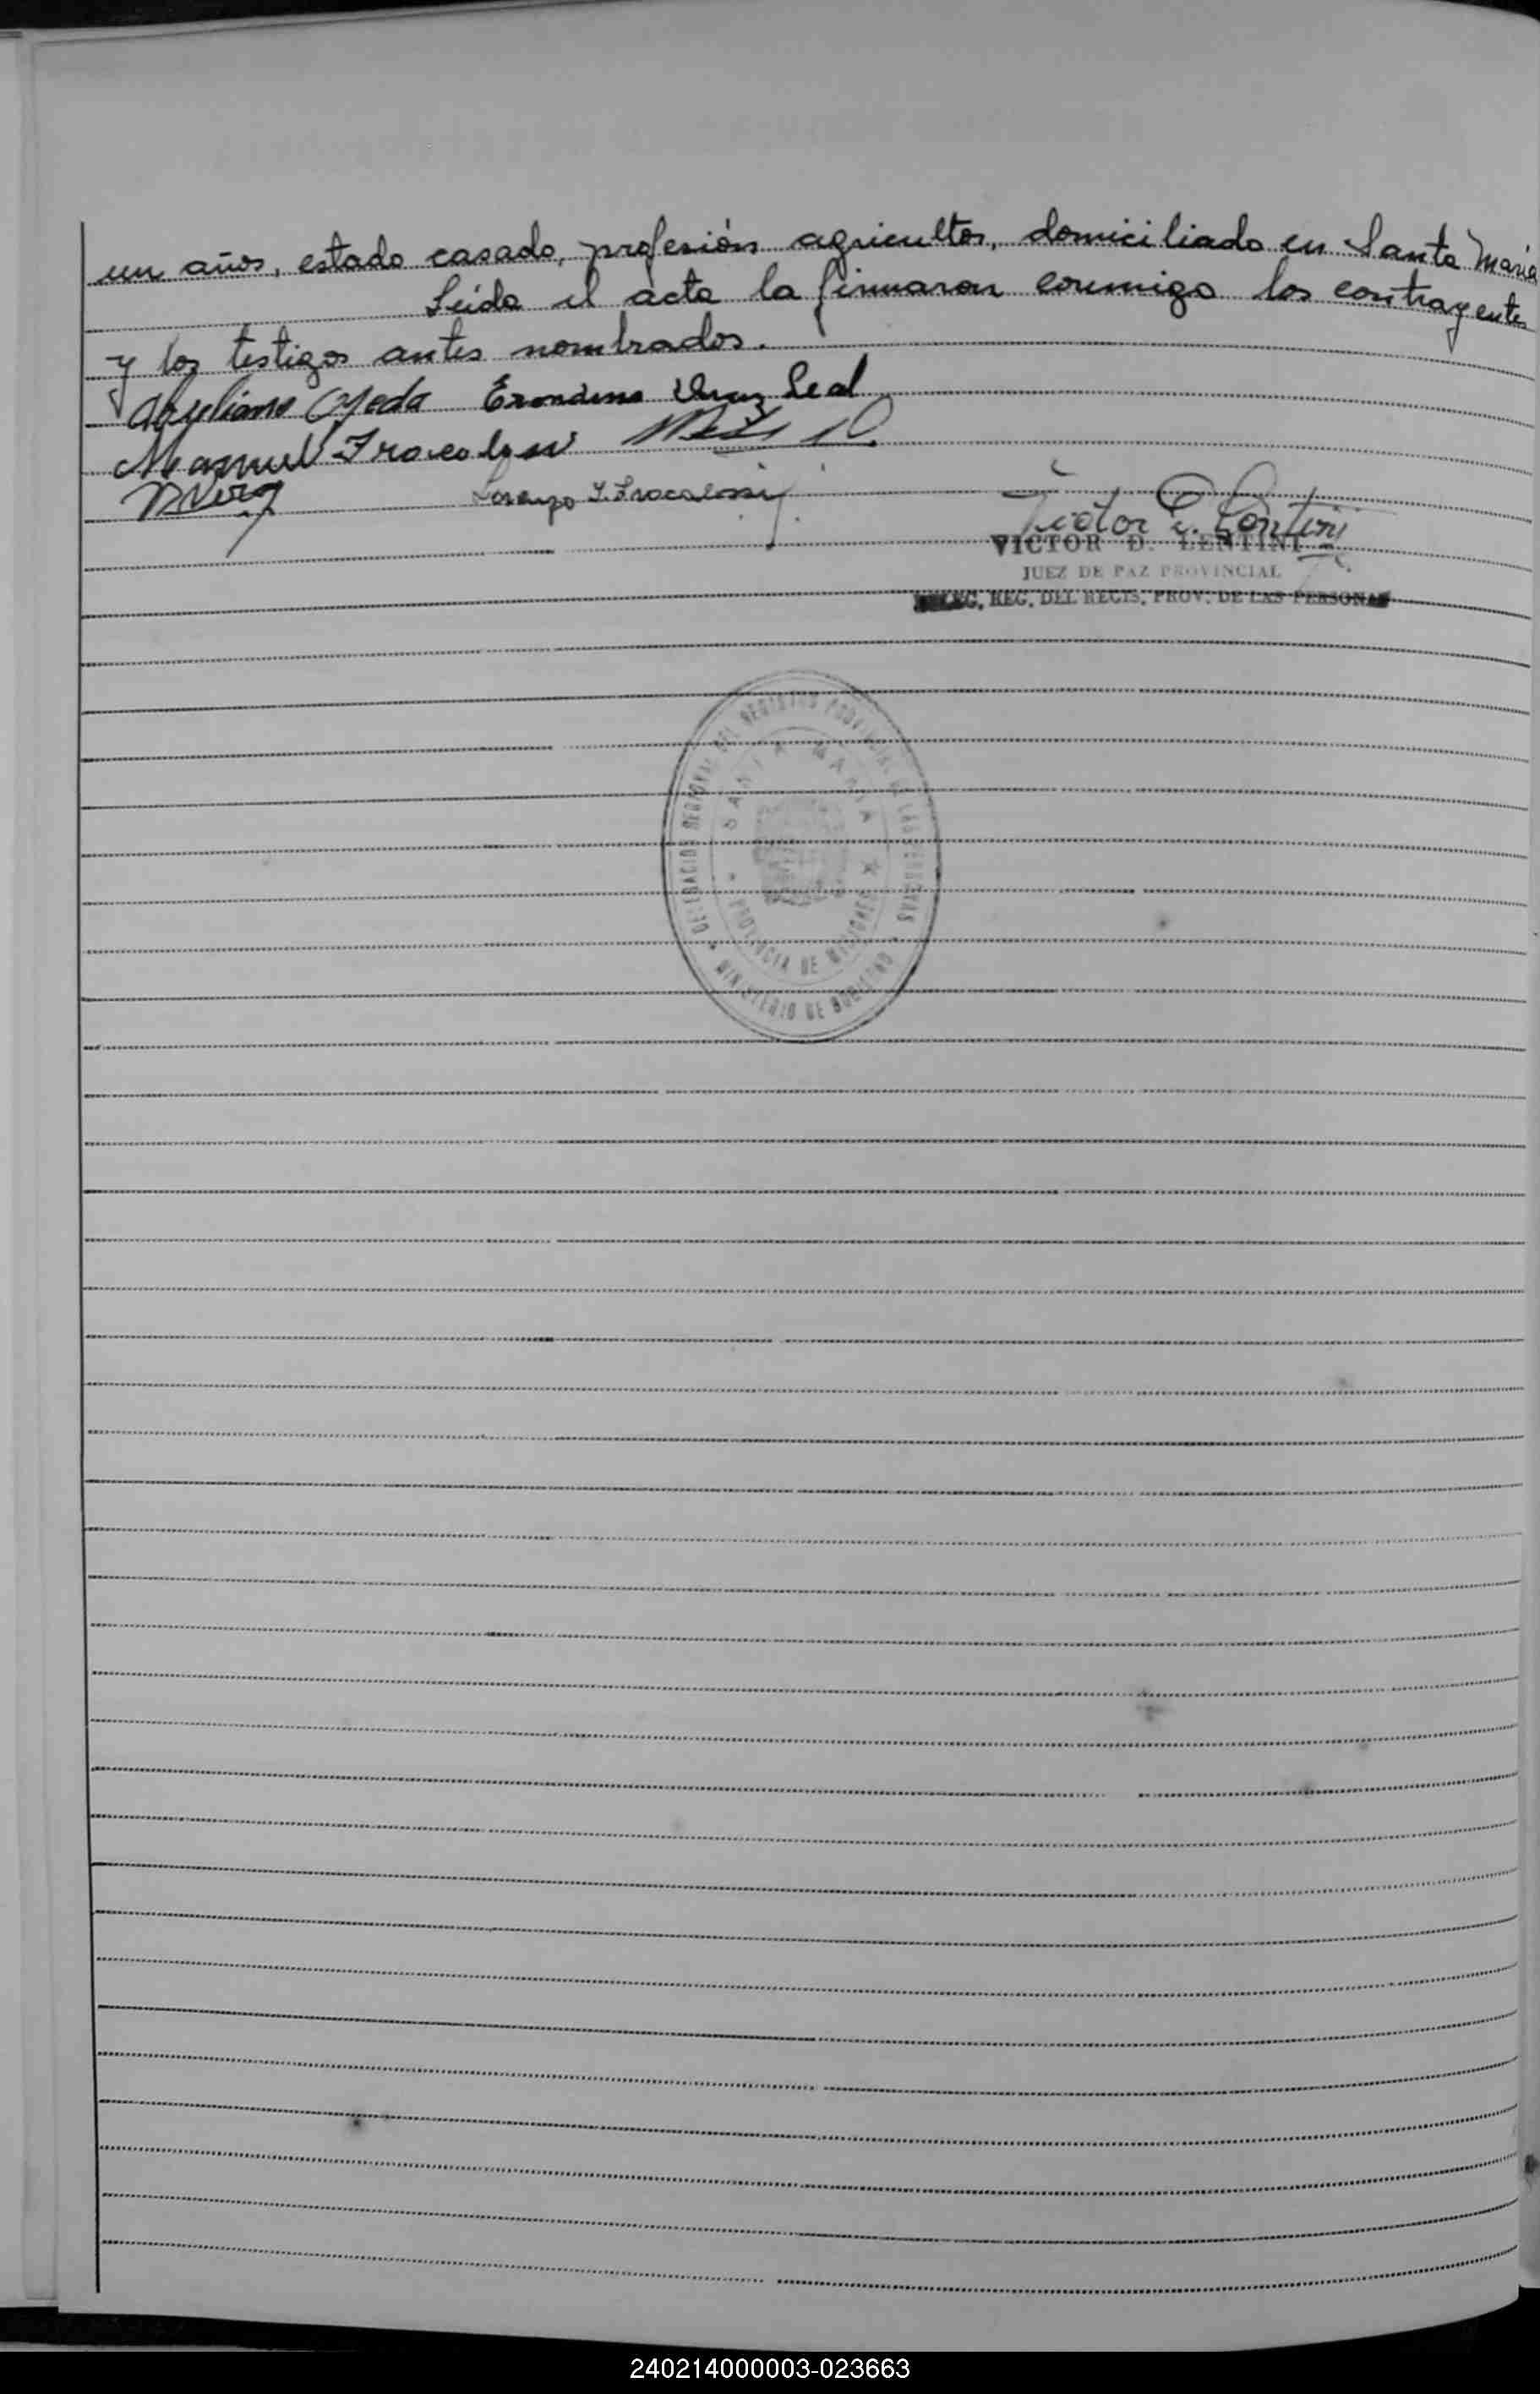 un años, estado casado, profesión agricultor, domiciliado en Santa María
Leída el acta la firmaron conmigo los contrayentes
y los testigos antes nombrados.
Ojeda Erondina Leal
Manuel Fracalossi
Lorenzo Y. Fracalossi
Victor D. Lentini
VICTOR D. LENTINI
JUEZ DE PAZ PROVINCIAL
DELEG. REG. DEL REGIS. PROV. DE LAS PERSONAS
DELEGACION REGIONAL DEL REGISTRO PROVINCIAL DE LAS PERSONAS
SANTA MARIA
PROVINCIA DE MISIONES
MINISTERIO DE GOBIERNO
240214000003-023663